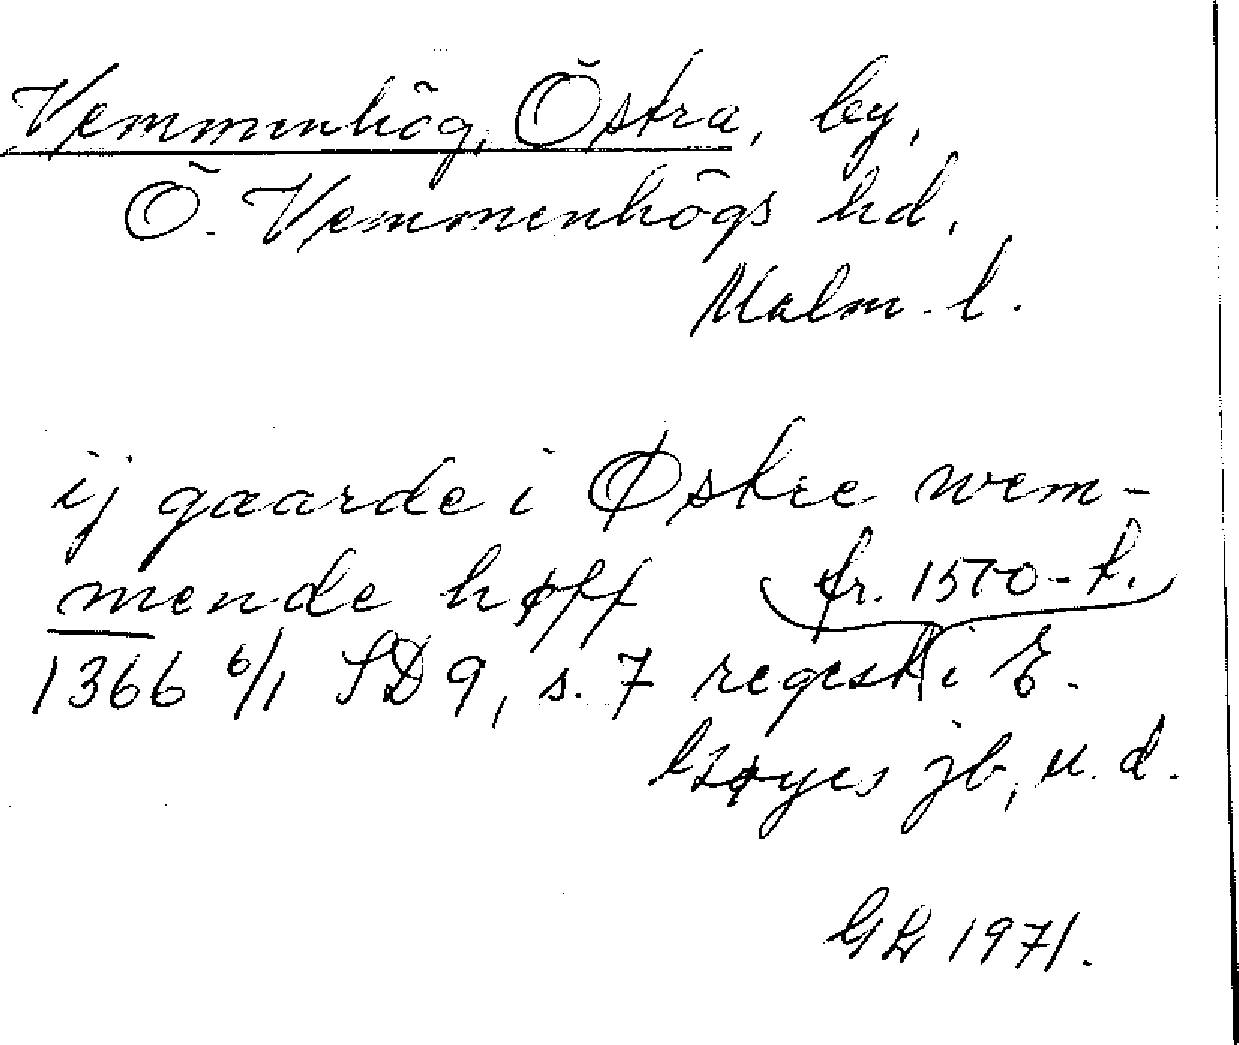 Vemmenhög, Östra, by,
Ö. Vemmenhögs hd,
Malm. l.
ij gaarde i Østre wem-
mende høff
fr. 1500-t.
1366 6/1 SD 9, s. 7 regest i E.
Krøyes jb, u. d.
GL 1971.